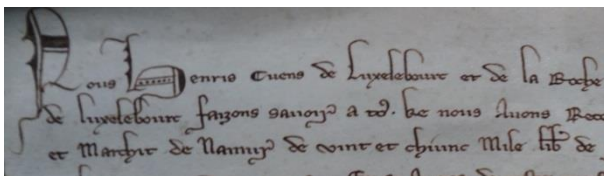 Nous Henris Cuens de Luxelebourc et de la Roche
de luxelebourc faizons savoir a tos. ke nous Avons Rece
et Marchit de Namur de vint et chiunc Mile lib de